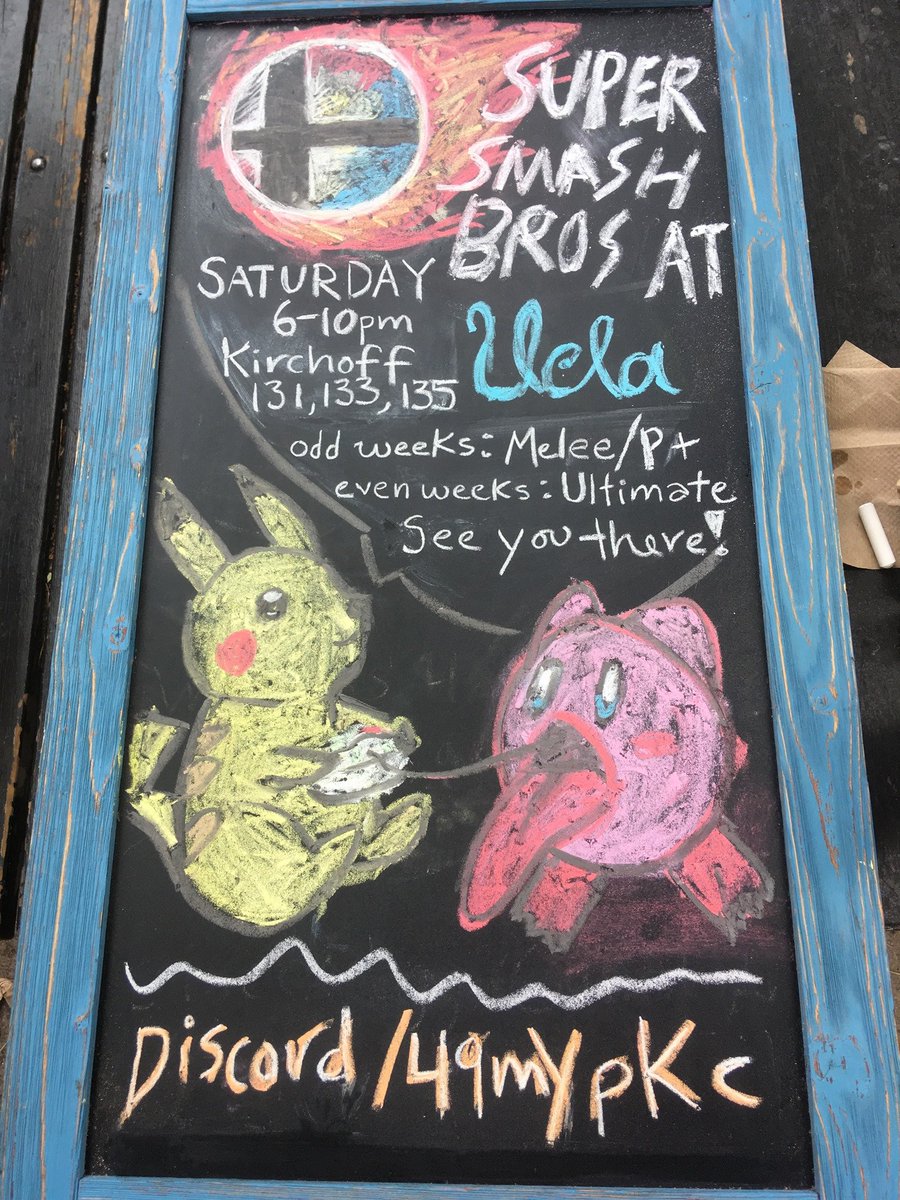 SUPER
SMASH
BROS AT
Ucla
SATURDAY
6-10pm
Kirchoff
131, 133, 135
odd weeks: Melee/P+
even weeks: Ultimate
See you there!
Discord /49mYpKc